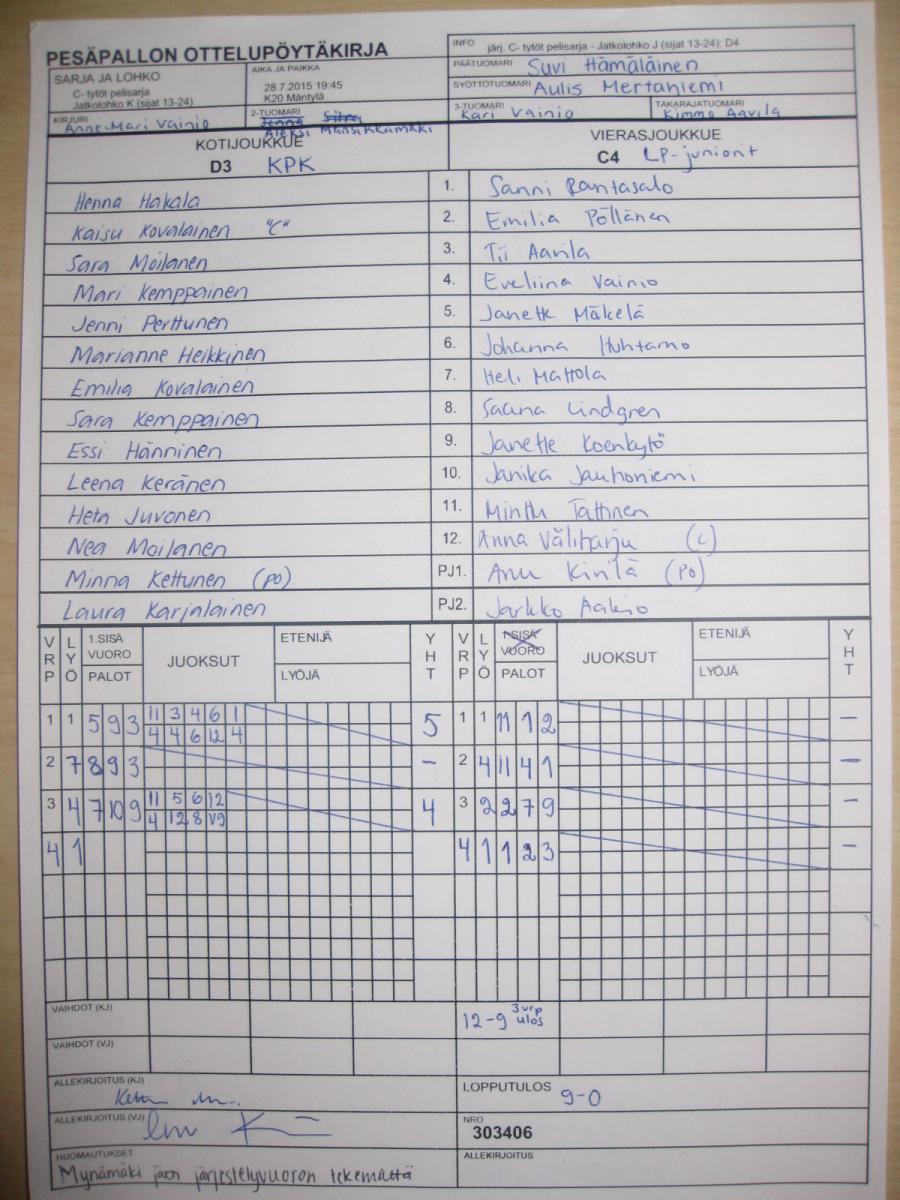 PESÄPALLON OTTELUPÖYTÄKIRJA
INFO järj. C- tytöt pelisarja - Jatkolohko J (sijat 13-24): D4
SARJA JA LOHKO
C- tytöt pelisarja
Jatkolohko K (sijat 13-24)
AIKA JA PAIKKA
28.7.2015 19:45
K20 Mäntylä
PÄÄTUOMARI Suvi Hämäläinen
SYÖTTÖTUOMARI Aulis Mertaniemi
KIRJURI Anne-Mari Vainio
2-TUOMARI
Aleksi Mansikkamäki
3-TUOMARI Kari Vainio
TAKARAJATUOMARI Kimmo Aavila
KOTIJOUKKUE
D3 KPK
VIERASJOUKKUE
C4 LP-juniorit
Henna Hakala 1. Sanni Rantasalo
Kaisu Kovalainen "C" 2. Emilia Pöllänen
Sara Moilanen 3. Tii Aavila
Mari Kemppainen 4. Eveliina Vainio
Jenni Perttunen 5. Janette Mäkelä
Marianne Heikkinen 6. Johanna Huhtamo
Emilia Kovalainen 7. Heli Mattola
Sara Kemppainen 8. Saana Lindgren
Essi Hänninen 9. Janette Koenkytö
Leena Keränen 10. Janika Jauhoniemi
Heta Juvonen 11. Minttu Tättinen
Nea Moilanen 12. Anna Väliharju (C)
Minna Kettunen (po) PJ1. Anu Kivilä (po)
Laura Karjalainen PJ2. Jarkko
VRP LYÖ 1.SISÄ VUORO PALOT JUOKSUT ETENIJÄ LYÖJÄ YHT VRP LYÖ 1.SISÄ VUORO PALOT JUOKSUT ETENIJÄ LYÖJÄ YHT
1 1 5 9 3 11 3 4 6 1 5 1 1 11 1 2 –
4 4 6 12 4
2 7 8 9 3 – 2 4 11 4 1 –
3 4 7 10 9 11 5 6 12 4 3 2 2 7 9 –
4 12 8 V9
4 1 4 1 1 2 3 –
VAIHDOT (KJ) 12-9 3 vrp ulos
VAIHDOT (VJ)
ALLEKIRJOITUS (KJ)
LOPPUTULOS 9-0
ALLEKIRJOITUS (VJ)
NRO
303406
HUOMAUTUKSET
Mynämäki järjestelyvuoron tekemättä
ALLEKIRJOITUS